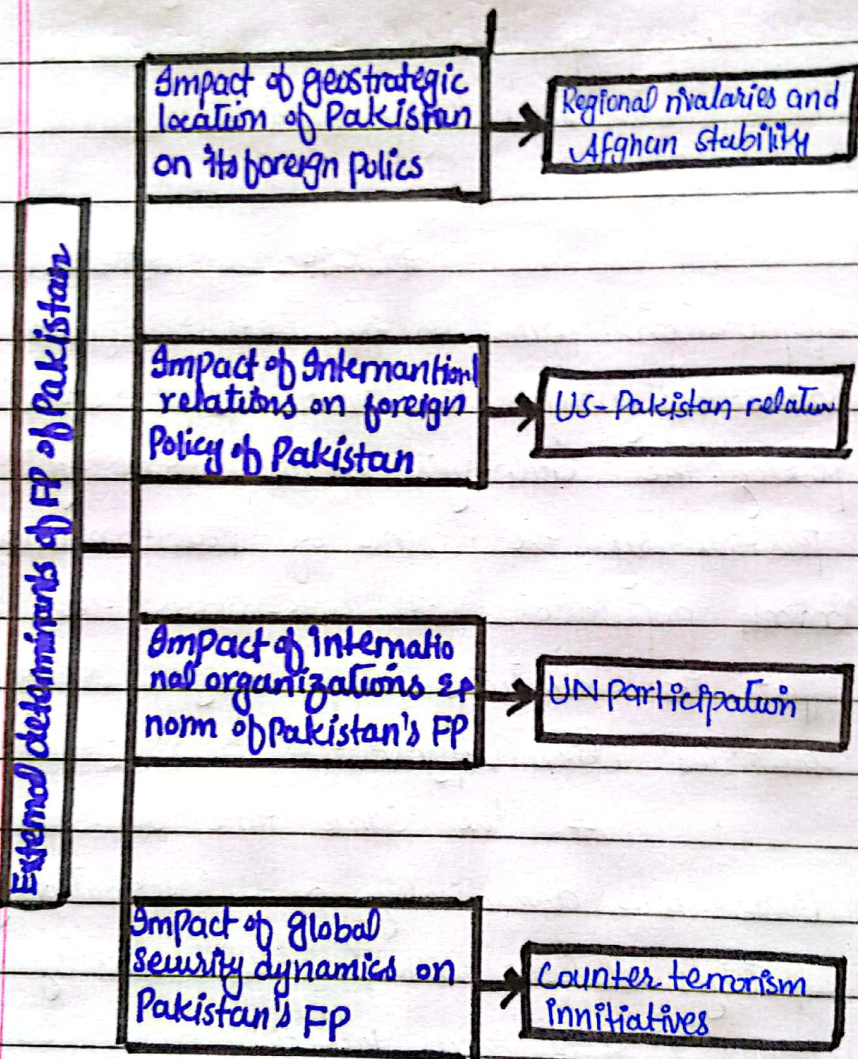 External determinants of FP of Pakistan
Impact of geostrategic
location of Pakistan
on its foreign polics
Regional rivalaries and
Afghan stability
Impact of Internantional
relations on foreign
Policy of Pakistan
US-Pakistan relation
Impact of internatio
nal organizations &
norm of Pakistan's FP
UN participation
Impact of global
security dynamics on
Pakistan's FP
Counter terrorism
innitiatives